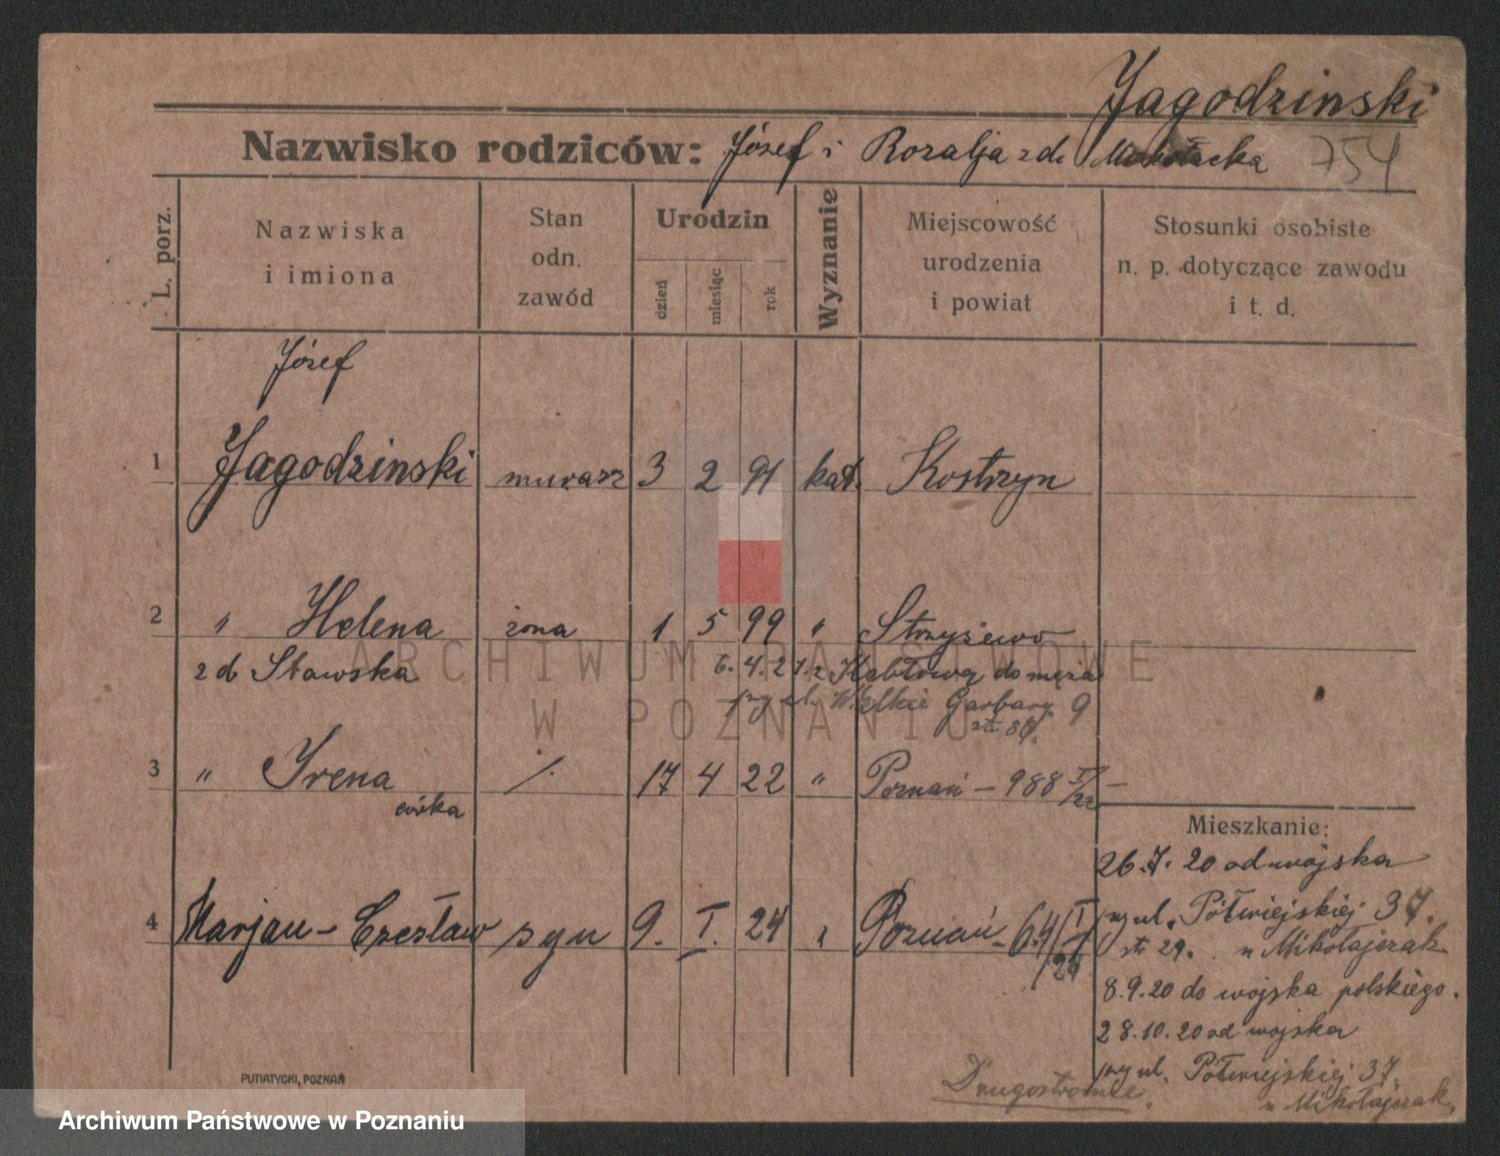 Jagodzinski
Nazwisko rodziców: Józef i Rozalja z d. 754
L. porz.
Nazwiska
i imiona
Stan
odn.
zawód
Urodzin
dzień
miesiąc
rok
Wyznanie
Miejscowość
urodzenia
i powiat
Stosunki osobiste
n. p. dotyczące zawodu
i t. d.
Józef
1 Jagodzinski murarz 3 2 91 kat. Kostrzyn
2 " Helena żona 1 5 99 " Strzyżewo
z d. Stawska 4. 21. z do męża
Wielkie Garbary 9
3 " Irena ./. 17 4 22 " Poznań - 988 I/22 -
córka
4 Marjan - Czesław syn 9. I. 24 " Poznań - 64/I/24
Mieszkanie:
26.7.20 od wojska
przy ul. Półwiejskiej 37.
str. 29. u Mikołajczak
8.9.20 do wojska polskiego.
28.10.20 od wojska
przy ul. Półwiejskiej 37.
u Mikołajczak.
Drugostronnie.
PUTIATYCKI, POZNAŃ
ARCHIWUM PAŃSTWOWE
W POZNANIU
Archiwum Państwowe w Poznaniu